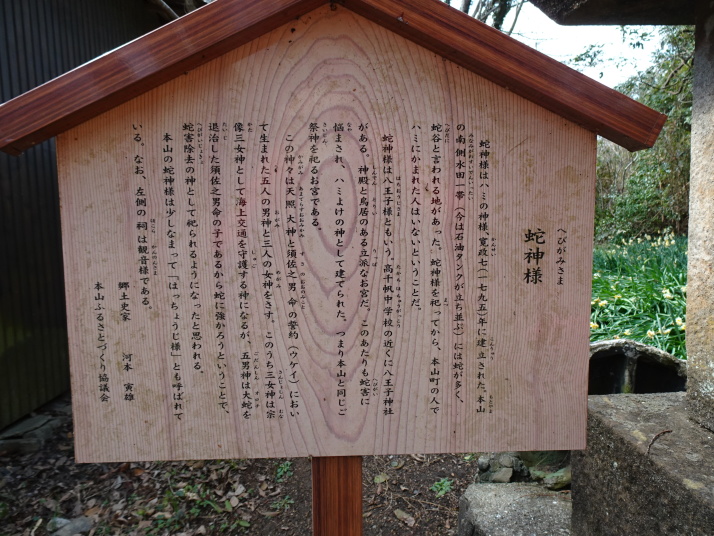 へびがみさま
蛇神様
蛇神様はハミの神様、寛政七(一七九五)年に建立された。本山
の南側水田一帯(今は石油タンクが立ち並ぶ)には蛇が多く、
蛇谷と言われる地があった。蛇神様を祀ってから、本山町の人で
ハミにかまれた人はいないということだ。
蛇神様は八王子様ともいう。高千帆中学校の近くに八王子神社
がある。神殿と鳥居のある立派なお宮だ。このあたりも蛇害に
悩まされ、ハミよけの神として建てられた。つまり本山と同じご
祭神を祀るお宮である。
この神々は天照大神と須佐之男命の誓約(ウケイ)におい
て生まれた五人の男神と三人の女神をさす。このうち三女神は宗
像三女神として海上交通を守護する神になるが、五男神は大蛇を
退治した須佐之男命の子であるから蛇に強かろうということで、
蛇害除去の神として祀られるようになったと思われる。
本山の蛇神様は少しなまって「はっちょうじ様」とも呼ばれて
いる。なお、左側の祠は観音様である。
郷土史家 河本 寅雄
本山ふるさとづくり協議会